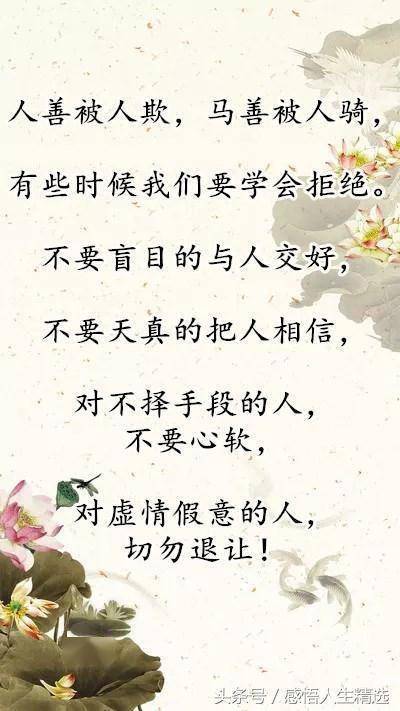 人善被人欺，马善被人骑，
有些时候我们要学会拒绝。
不要盲目的与人交好，
不要天真的把人相信，
对不择手段的人，
不要心软，
对虚情假意的人，
切勿退让！
头条号 / 感悟人生精选